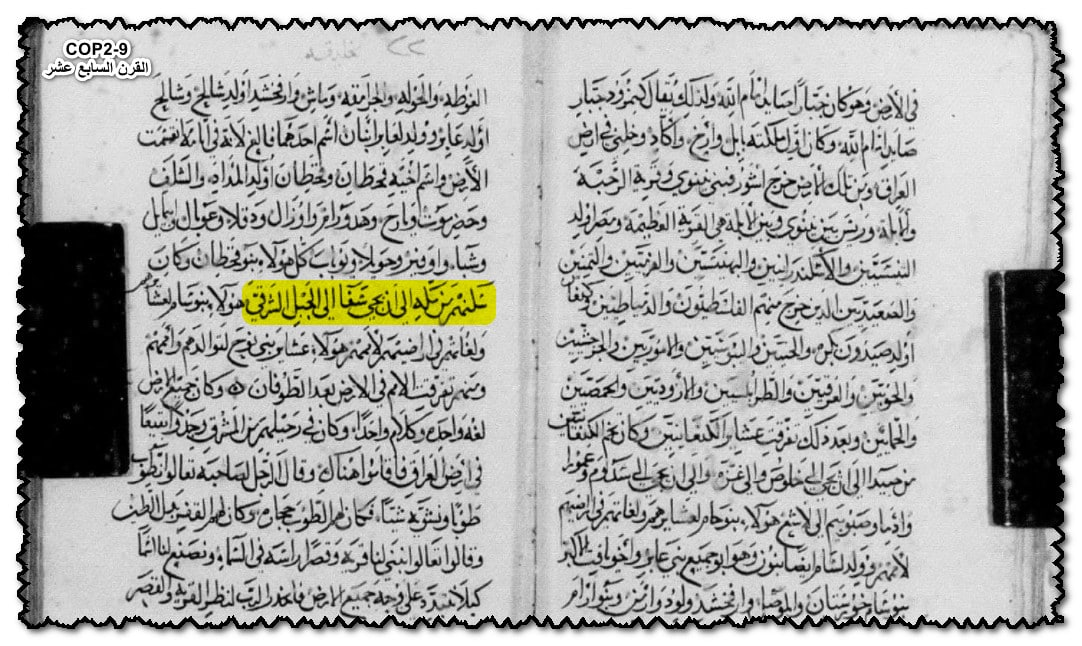 COP2-9
القرن السابع عشر
في الارض وهو كان جبارا صايدا قدام الله ولذلك يقال كنمرود جبار
صايد قدام الله وكان اول مملكته بابل وارخ واكاد وخلني في ارض
العراق ومن تلك الارض خرج اشور فبنى نينوى وقرية الرحبة
والابلة ورسن بين نينوى وبين الابلة هي القرية العظيمة ومصر اولد
والاسكندرانيين والبهنسيين
والصعيديين الذين خرج منهم الفلسطيون والدمياطيين وكنعان
اولد صيدون بكره والحثيين واليبوسيين والاموريين والجرجشيين
والحويين والعرقيين والطرابلسيين والاروديين والحمصيين
والحمايين وبعد ذلك تفرقت عشاير الكنعانيين وكان تخم الكنعانيين
من صيدا الى ان تجي الى خلوص والى غزة والى ان تجي الى سدوم وعمورا
وادما وصبويم الى لاشع هولاء بنو حام لعشايرهم ولغاتهم في ارضهم
لاممهم وولد لسام ايضا بنون وهو ابو جميع بني عابر واخو يافث الاكبر
بنو سام خوزستان والموصل وارفخشد ولود وارمن وبنو ارام
الغوطه والحوله والجرامقه وماش وارفخشد اولد شالخ وشالخ
اولد عابر وولد لعابر ابنان اسم احدهما فالغ لانه في ايامه انقسمت
الارض واسم اخيه قحطان وقحطان اولد المداد والشلف
وحضرموت ويارح وهدورام واوزال ودقلا وعوبال وابيمايل
وشبا واوفير وحويلا ويوباب كل هولاء بنو قحطان وكان
مسكنهم من مكه الى ان تجي سفا الى الجبل الشرقي هولاء بنو سام لعشايرهم
ولغاتهم في ارضهم لاممهم هولاء عشاير بني نوح لتواليدهم واممهم
ومنهم تفرقت الامم في الارض بعد الطوفان وكان جميع الارض
لغه واحده وكلام واحدا وكان في رحيلهم من المشرق وجدوا متسعا
في ارض العراق فاقاموا هناك وقال الرجل لصاحبه تعالوا نطوب
طوبا ونشويه شيا فكان لهم الطوب حجارة وكان لهم القفر بدل الطين
وقالوا تعالوا نبني لنا قرية وقصرا راسه في السماء ونصنع لنا اسما
كيلا نتبدد على وجه جميع الارض فانحدر الرب لنظر القرية والقصر